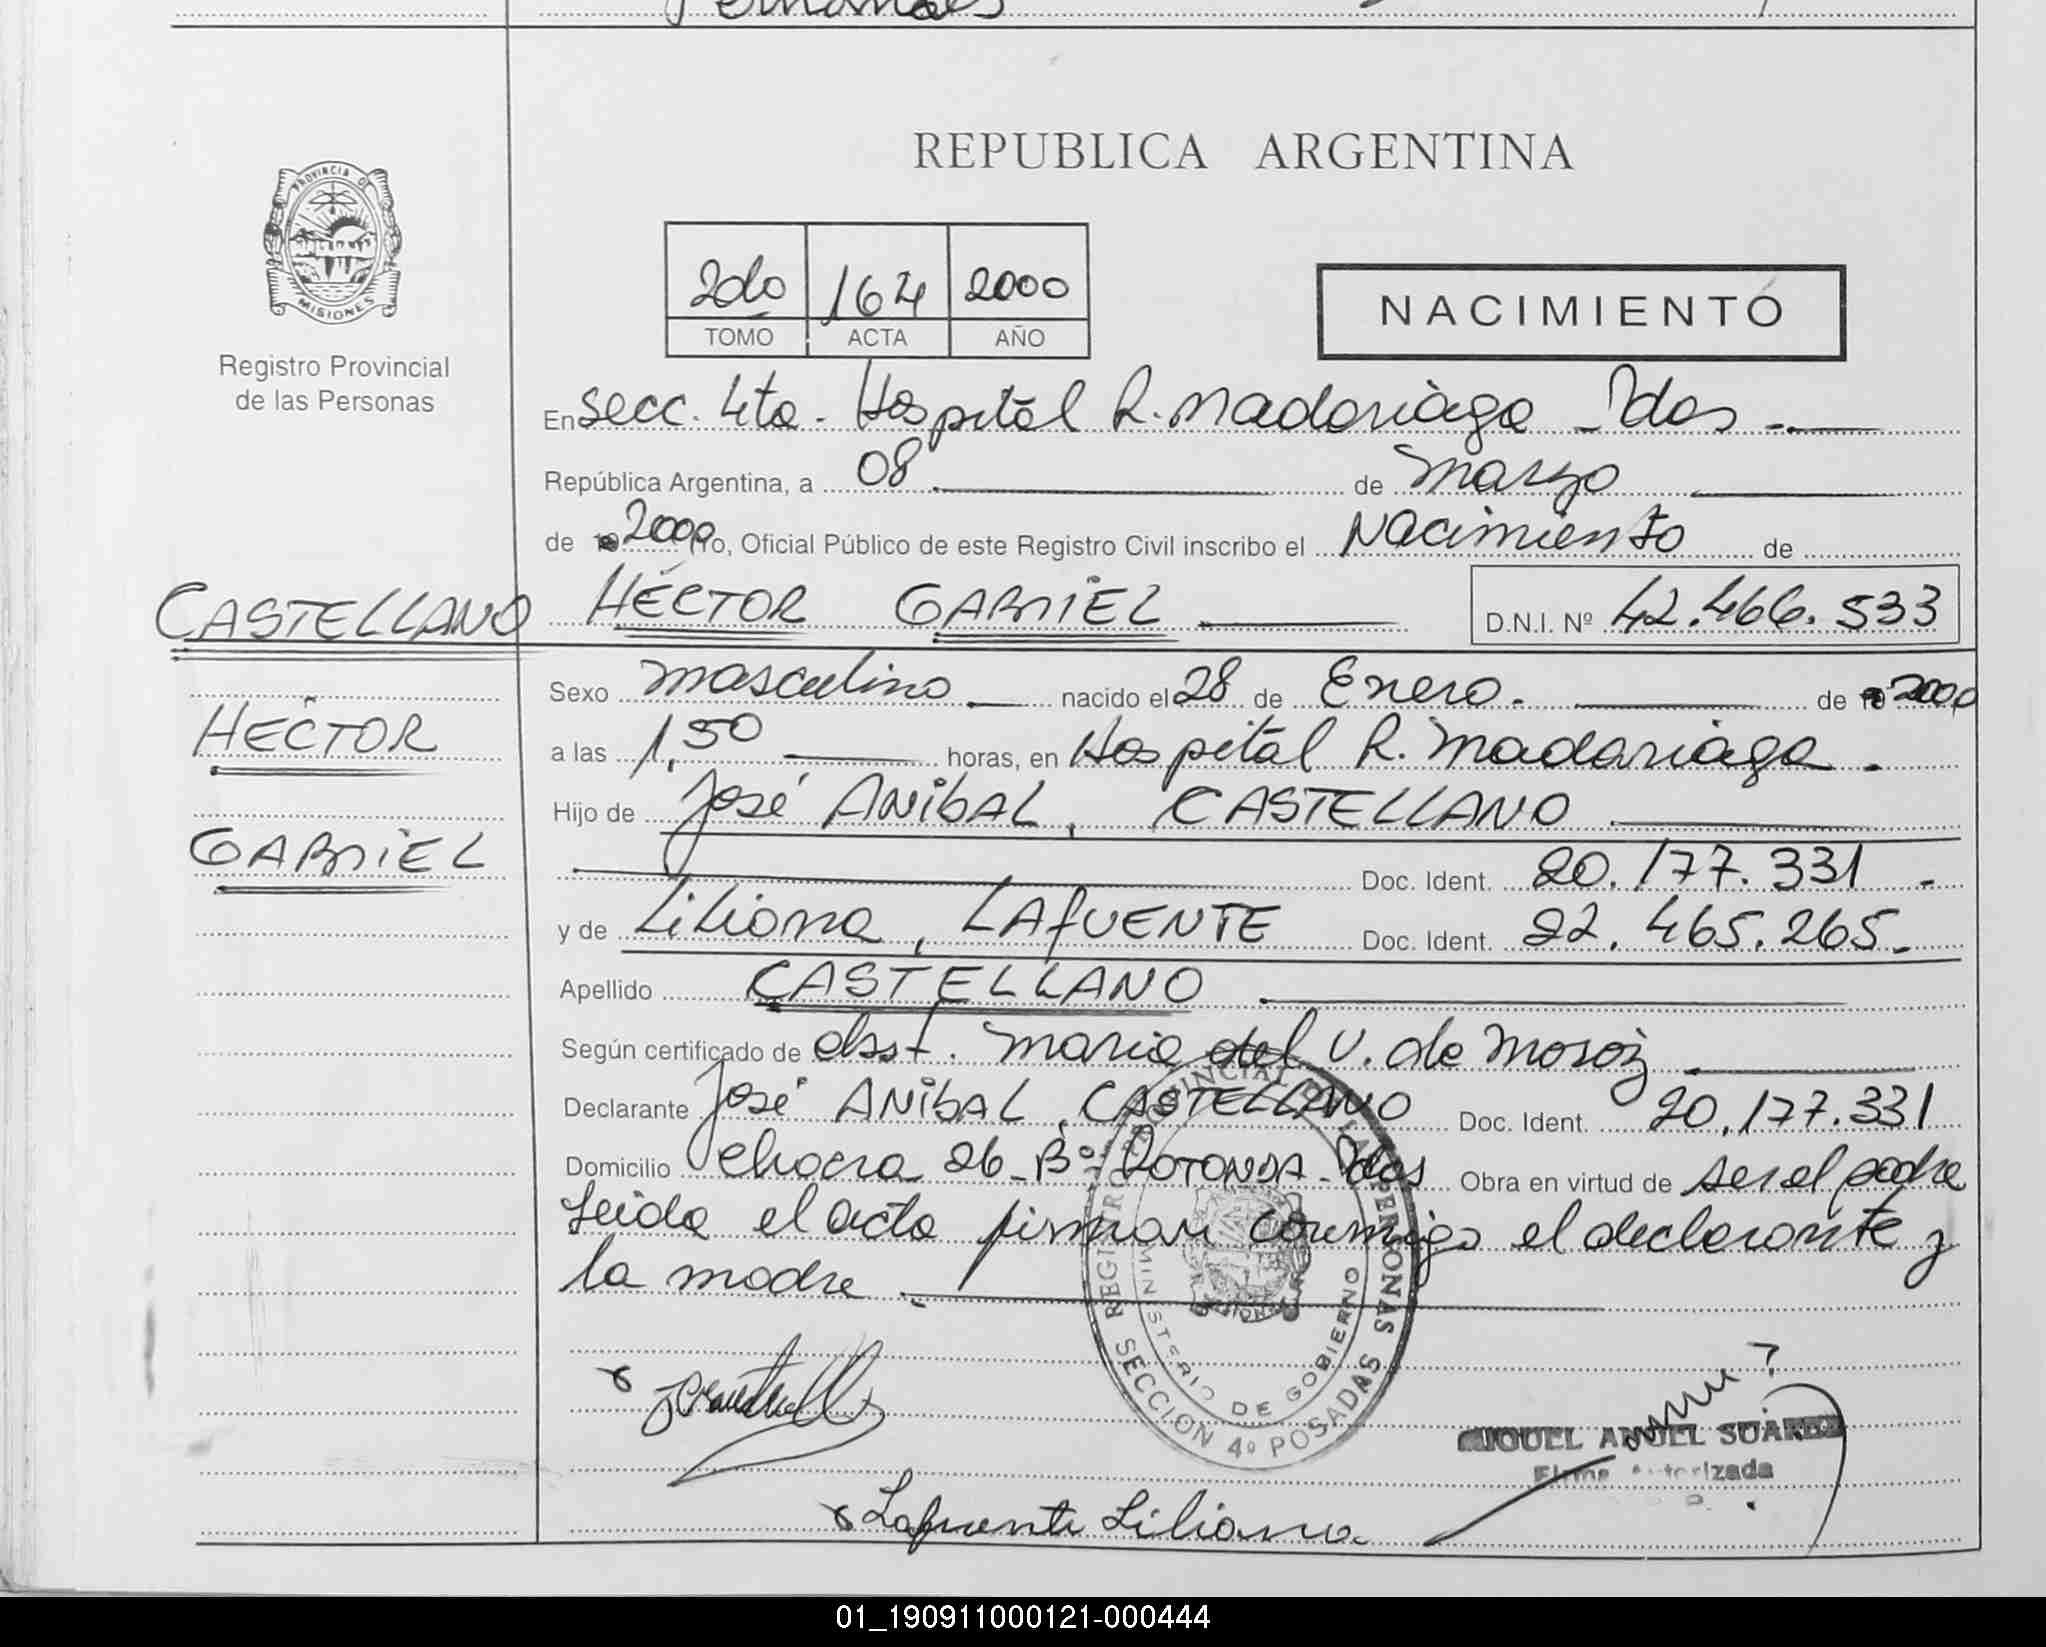 REPUBLICA ARGENTINA
PROVINCIA DE
MISIONES
Registro Provincial
de las Personas
2do 164 2000
TOMO ACTA AÑO
NACIMIENTO
En Secc. 4ta. Hospital R. Madariaga - Pdas -.
República Argentina, a 08 de Marzo
de 2000 Yo, Oficial Público de este Registro Civil inscribo el Nacimiento de
CASTELLANO HÉCTOR GABRIEL D.N.I. Nº 42.466.533
HECTOR
GABRIEL
Sexo masculino nacido el 28 de Enero. de 2000
a las 1,50 horas, en Hospital R. Madariaga.
Hijo de José ANíbAL, CASTELLANO
Doc. Ident. 20.177.331 -
y de Liliana, LAfUENTE Doc. Ident. 22.465.265.-
Apellido CASTELLANO
Según certificado de obst. Maria del V. de
Declarante José ANíbAL, CASTELLANO Doc. Ident. 20.177.331
Domicilio Chacra 26 - Bº ROTONDA - Pdas Obra en virtud de ser el padre
Leida el acta firman conmigo el declarante y
la madre.
REGISTRO PROVINCIAL DE LAS PERSONAS
MINISTERIO DE GOBIERNO
SECCION 4º POSADAS
MIGUEL ANGEL SUAREZ
Firma Autorizada
Lafuente Liliana.
01_190911000121-000444